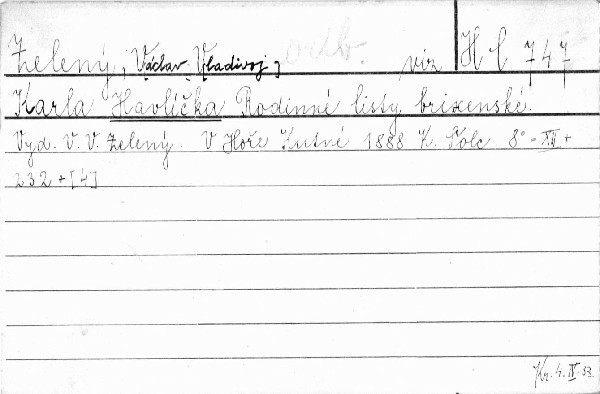 Zelený, Václav Vladivoj] viz H l 747
Karla Havlíčka Rodinné listy brixenské.
Vyd. V. V. Zelený. V Hoře Kutné 1888 K. Šolc 8° - XII +
232 + [4]
Kr. 4. IV. 53